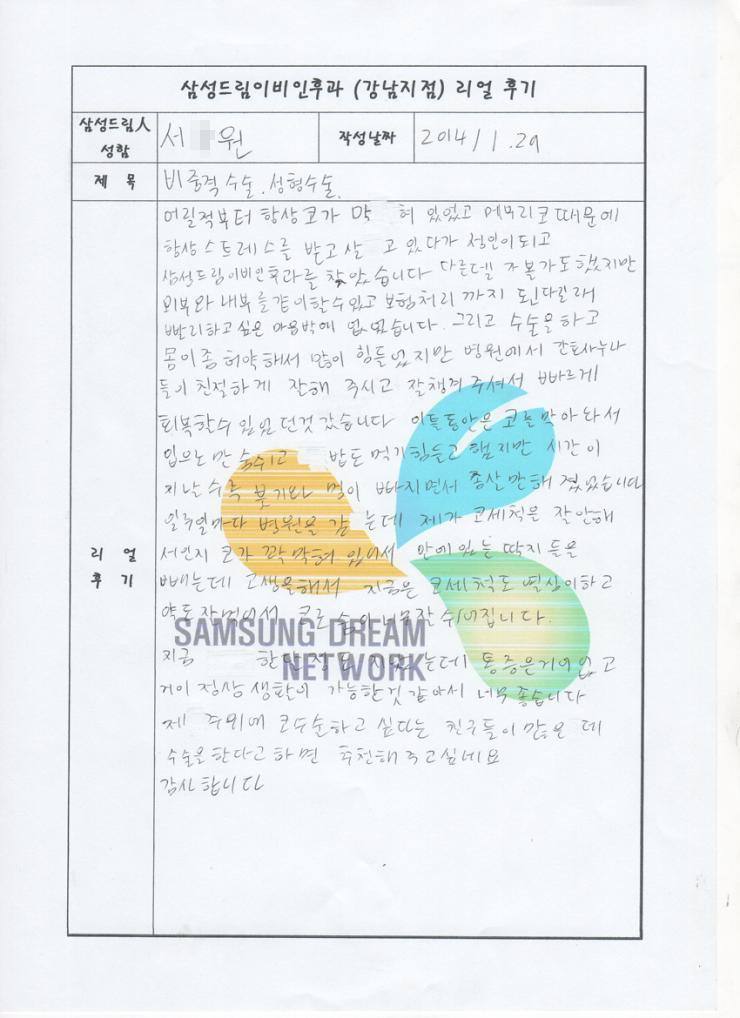 삼성드림이비인후과 (강남지점) 리얼 후기
삼성드림人 성함
서 원
작성날짜
2014/1.29
제 목
비중격수술.성형수술.
리 얼 후 기
어릴적부터 항상코가 막 혀 있었고 메부리코때문에
항상스트레스를 받고살 고있다가 성인이되고
삼성드림이비인후과를 찾았습니다 다른델 가볼가도했지만
외부와 내부를같이할수있고 보험처리 까지 된다길래
빨리하고싶은 마음밖에 없었습니다. 그리고 수술을하고
몸이좀 허약해서 많이 힘들었지만 병원에서 간호사누나
들이친절하게 잘해 주시고 잘챙겨주셔서 빠르게
회복할수 있었던것 같습니다 이틀동안은 코를막아놔서
입으로만 숨쉬고 밥도 먹기힘들고 했지만 시간이
지날수록 붓기와 멍이 빠지면서 좀살만해 졌었습니다
일주일마다 병원을 갔 는데 제가 코세척을 잘안해
서인지 코가 꽉막혀 있어서 안에있는 딱지들을
빼는데 고생을해서 지금은 코세척도 열심히하고
약도잘먹어서 코로 숨이너무잘 쉬어집니다.
지금 한달정도 지났는데 통증은거이없고
거이정상생활이 가능한것 같아서 너무좋습니다
제 주위에 코수술하고 싶다는 친구들이 많은데
수술을한다고하면 추천해주고싶네요
감사합니다
SAMSUNG DREAM
NETWORK